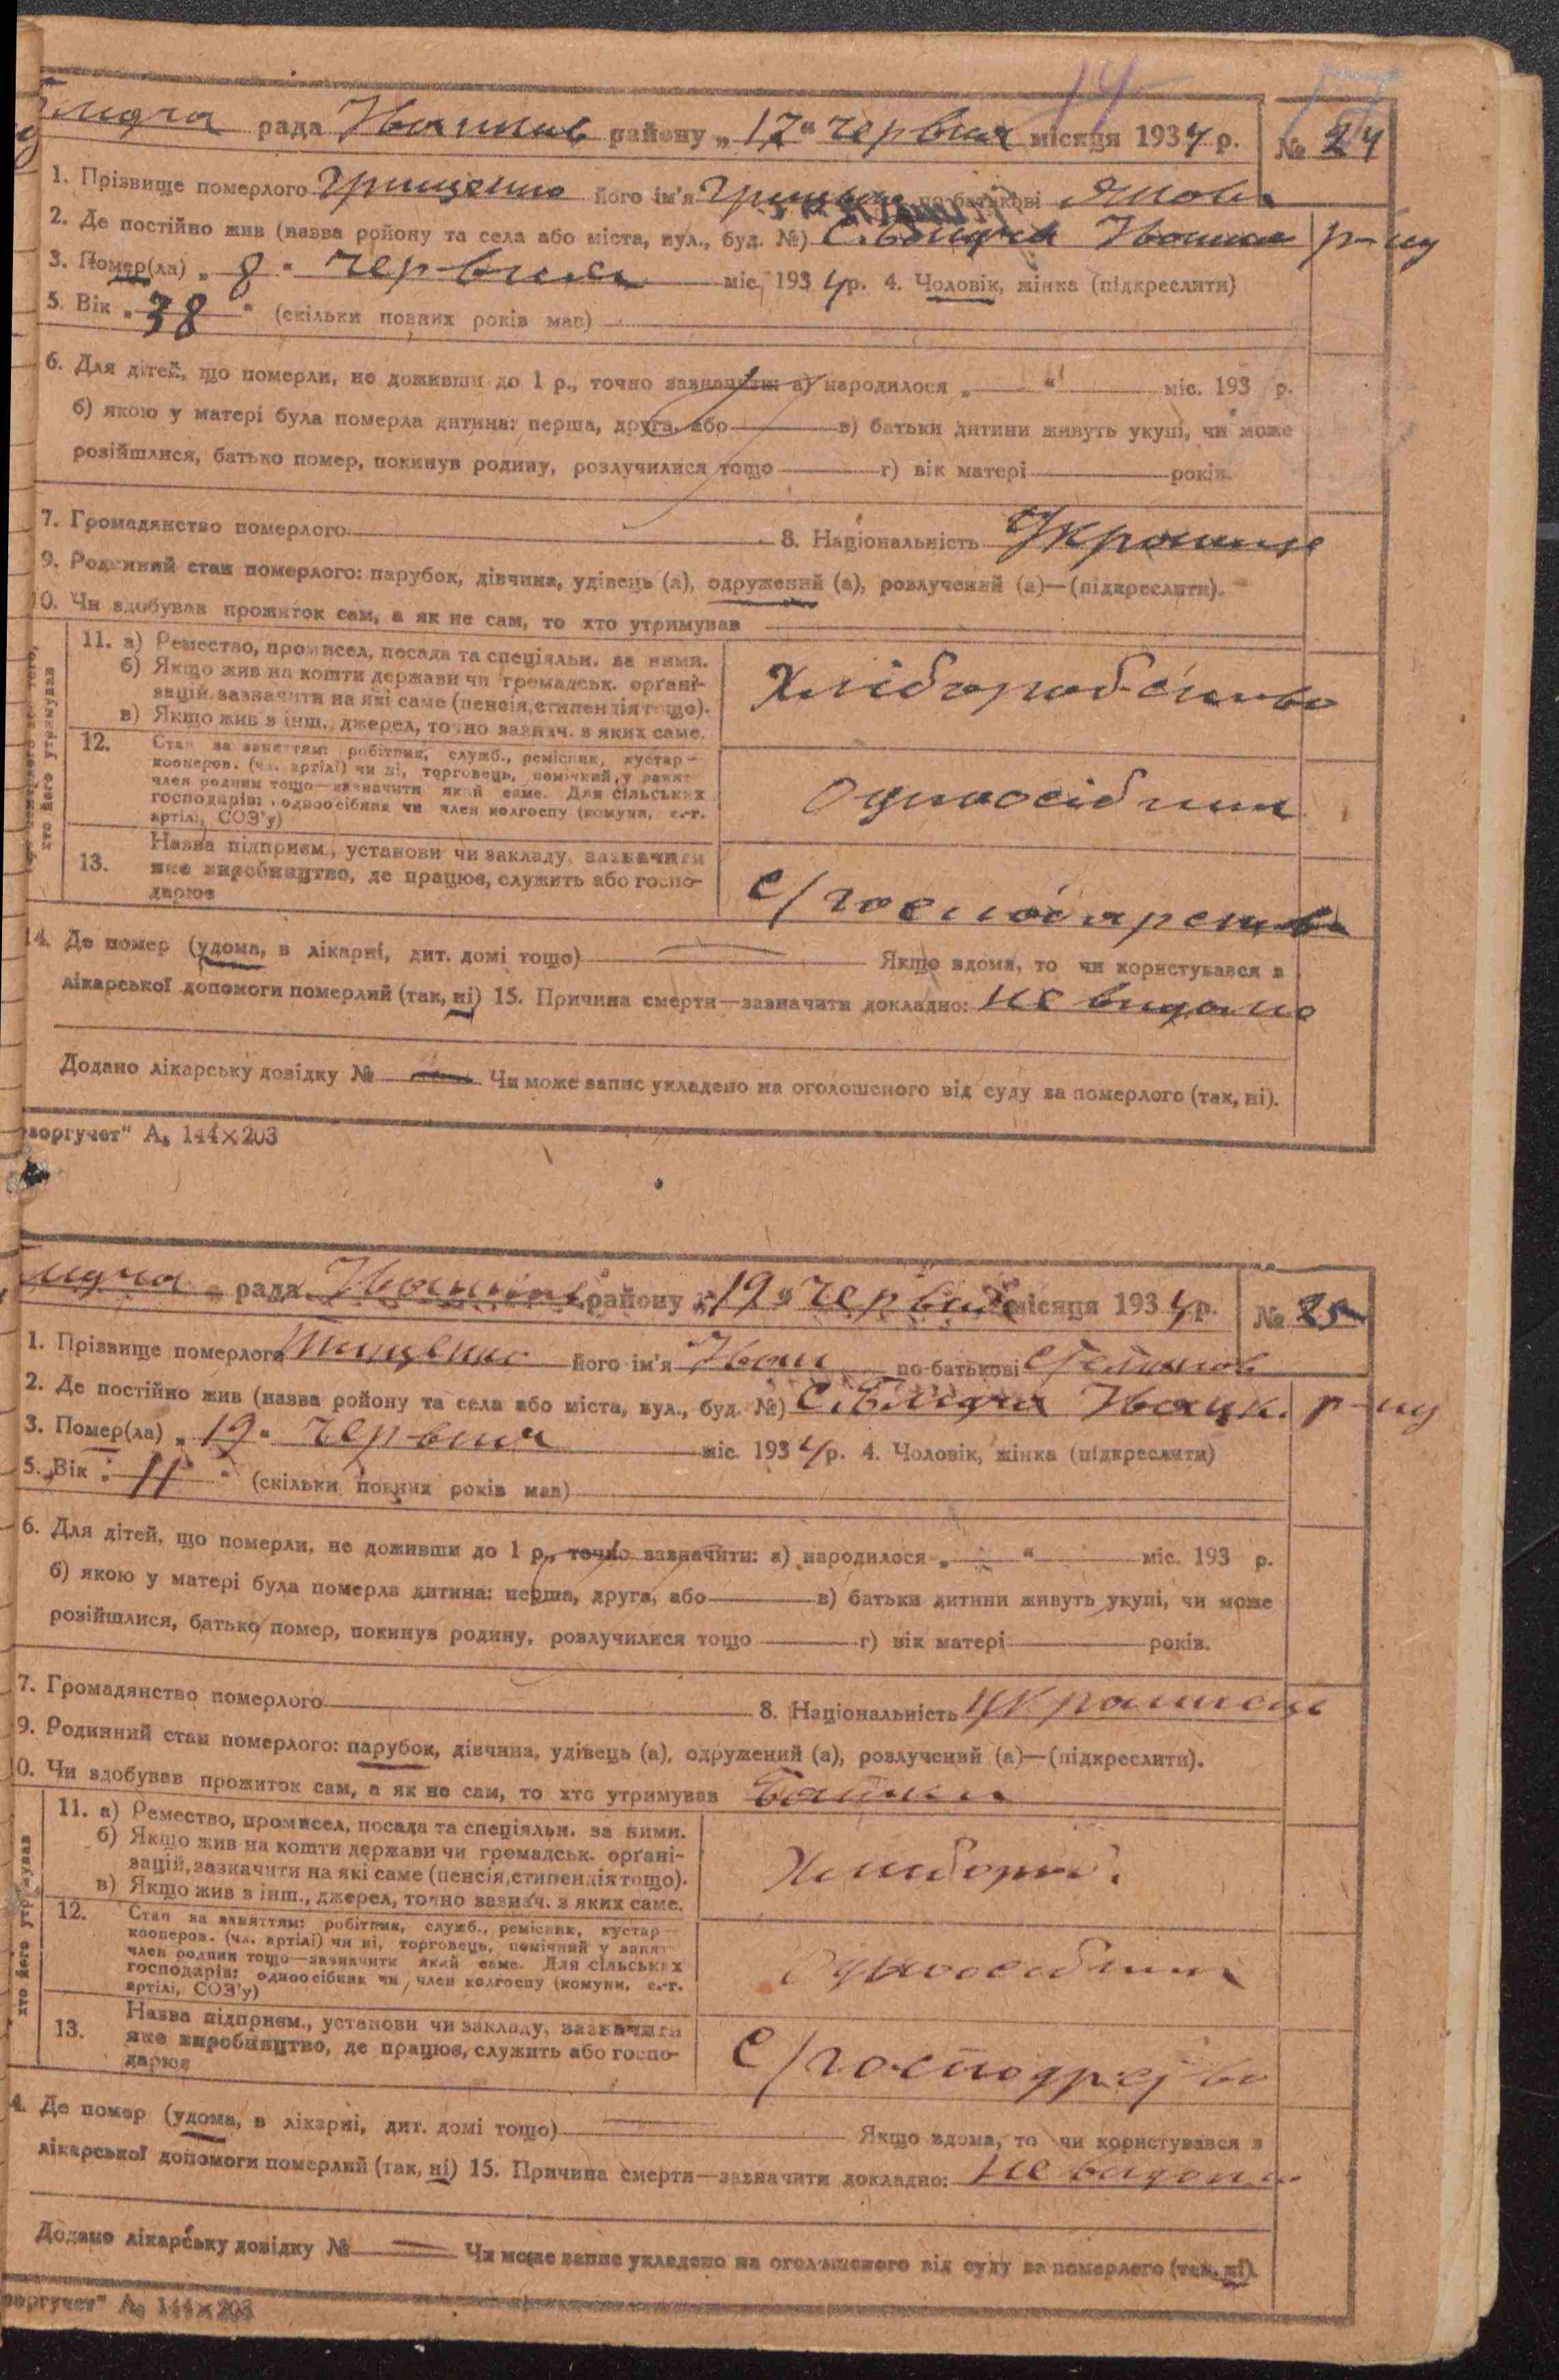 рада Іванків району „ 17 " червня місяця 1934 р. № 24
1. Прізвище померлого Грищенко його ім'я по-батькові Яков.
2. Де постійно жив (назва ройону та села або міста, вул., буд. №) с. Блидча Іванк. р-ну
3. Помер(ла) „ 8 " червня міс. 1934 р. 4. Чоловік, жінка (підкреслити)
5. Вік „ 38 " (скільки повних років мав)
6. Для дітей, що померли, не доживши до 1 р., точно зазначити: а) народилося „ " міс. 193 р.
б) якою у матері була померла дитина: перша, друга, або в) батьки дитини живуть укупі, чи може
розійшлися, батько помер, покинув родину, розлучилися тощо г) вік матері років.
7. Громадянство померлого 8. Національність Українец
9. Родинний стан померлого: парубок, дівчина, удівець (а), одружений (а), розлучений (а)—(підкреслити).
10. Чи здобував прожиток сам, а як не сам, то хто утримував
хто його утримував
11. а) Ремество, промисел, посада та спеціяльн. за ними.
б) Якщо жив на кошти держави чи громадськ. органі-
зацій, зазначити на які саме (пенсія, стипендія тощо).
в) Якщо жив з інш., джерел, точно зазнач. з яких саме.
Хліборобство
12. Стан за заняттям: робітник, служб., ремісник, кустар—
кооперов. (чл. артілі) чи ні, торговець, помічний у занят
член родини тощо—зазначити який саме. Для сільських
господарів: одноосібник чи член колгоспу (комуни, с.-г.
артілі, СОЗ'у)
Одноосібник
13. Назва підприєм., установи чи закладу, зазначити
яке виробництво, де працює, служить або госпо-
дарює
с/господарство
14. Де помер (удома, в лікарні, дит. домі тощо) Якщо вдома, то чи користувався з
лікарської допомоги померлий (так, ні) 15. Причина смерти—зазначити докладно: не видомо
Додано лікарську довідку № Чи може запис укладено на оголошеного від суду за померлого (так, ні).
воргучет" А₅ 144×203
рада Іванків району „ 19 " червня місяця 1934 р. № 25
1. Прізвище померлого Тищенко його ім'я Іван по-батькові Степанов
2. Де постійно жив (назва ройону та села або міста, вул., буд. №) с. Блидча Іванк. р-ну
3. Помер(ла) „ 19 " червня міс. 1934 р. 4. Чоловік, жінка (підкреслити)
5. Вік „ 11 " (скільки повних років мав)
6. Для дітей, що померли, не доживши до 1 р., точно зазначити: а) народилося „ " міс. 193 р.
б) якою у матері була померла дитина: перша, друга, або в) батьки дитини живуть укупі, чи може
розійшлися, батько помер, покинув родину, розлучилися тощо г) вік матері років.
7. Громадянство померлого 8. Національність Українец
9. Родинний стан померлого: парубок, дівчина, удівець (а), одружений (а), розлучений (а)—(підкреслити).
10. Чи здобував прожиток сам, а як не сам, то хто утримував Батьки
хто його утримував
11. а) Ремество, промисел, посада та спеціяльн. за ними.
б) Якщо жив на кошти держави чи громадськ. органі-
зацій, зазначити на які саме (пенсія, стипендія тощо).
в) Якщо жив з інш., джерел, точно зазнач. з яких саме.
12. Стан за заняттям: робітник, служб., ремісник, кустар—
кооперов. (чл. артілі) чи ні, торговець, помічний у занят
член родини тощо—зазначити який саме. Для сільських
господарів: одноосібник чи член колгоспу (комуни, с.-г.
артілі, СОЗ'у)
одноосібник
13. Назва підприєм., установи чи закладу, зазначити
яке виробництво, де працює, служить або госпо-
дарює
14. Де помер (удома, в лікарні, дит. домі тощо) Якщо вдома, то чи користувався з
лікарської допомоги померлий (так, ні) 15. Причина смерти—зазначити докладно: не видомо
Додано лікарську довідку № Чи може запис укладено на оголошеного від суду за померлого (так, ні).
воргучет" А₅ 144×203